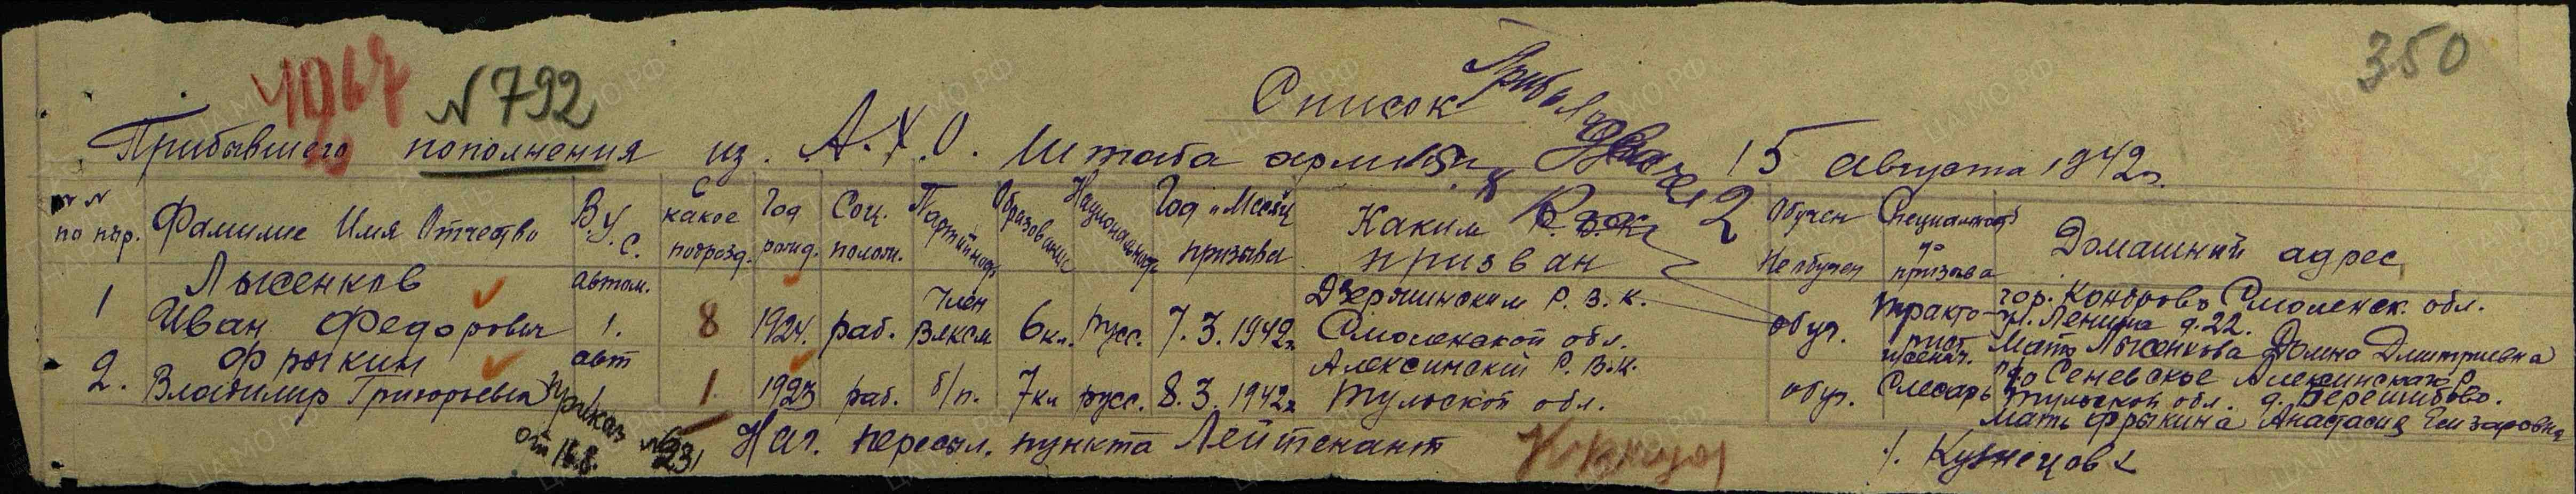 350
1967
N 792
Список
Прибывшего пополнения из. А.Х.О. Штаба армии 15 августа 1942г.
Прибыл
два 2
№ N по пър. Фамилие Имя Отчество В.У.С. С какое подрозд. Год рожд. Соц. полож. Партийность Образование Национальность Год и Месяц призыва Каким Р.В.К. призван Обучен Не обучен Специальность до призыва Домашний адрес
1 Лыженков Иван Федорович автом. 1. 8 1924. раб. Член ВЛКСМ 6кл. русс. 7.3.1942г. Дзержинским Р.В.К. Смоленской обл. обуч. Тракторист гор. Кондрово Смоленск. обл. ул. Ленина д.22. Мать Лыженкова Домна Дмитриевна
2. Фрыкин Владимир Григорьевич авт 1 1. 1923 раб. б/п. 7кл русс. 8.3.1942г Алексинский Р.В.К. Тульской обл. обуч. Слесарь п/о Сеневское Алексинского р Тульской обл. д. Мать Фрыкина Анастасия Елизаровна
Приказ №231
от 16.8.
Нач. пересыл. пункта Лейтенант /. Кузнецов/